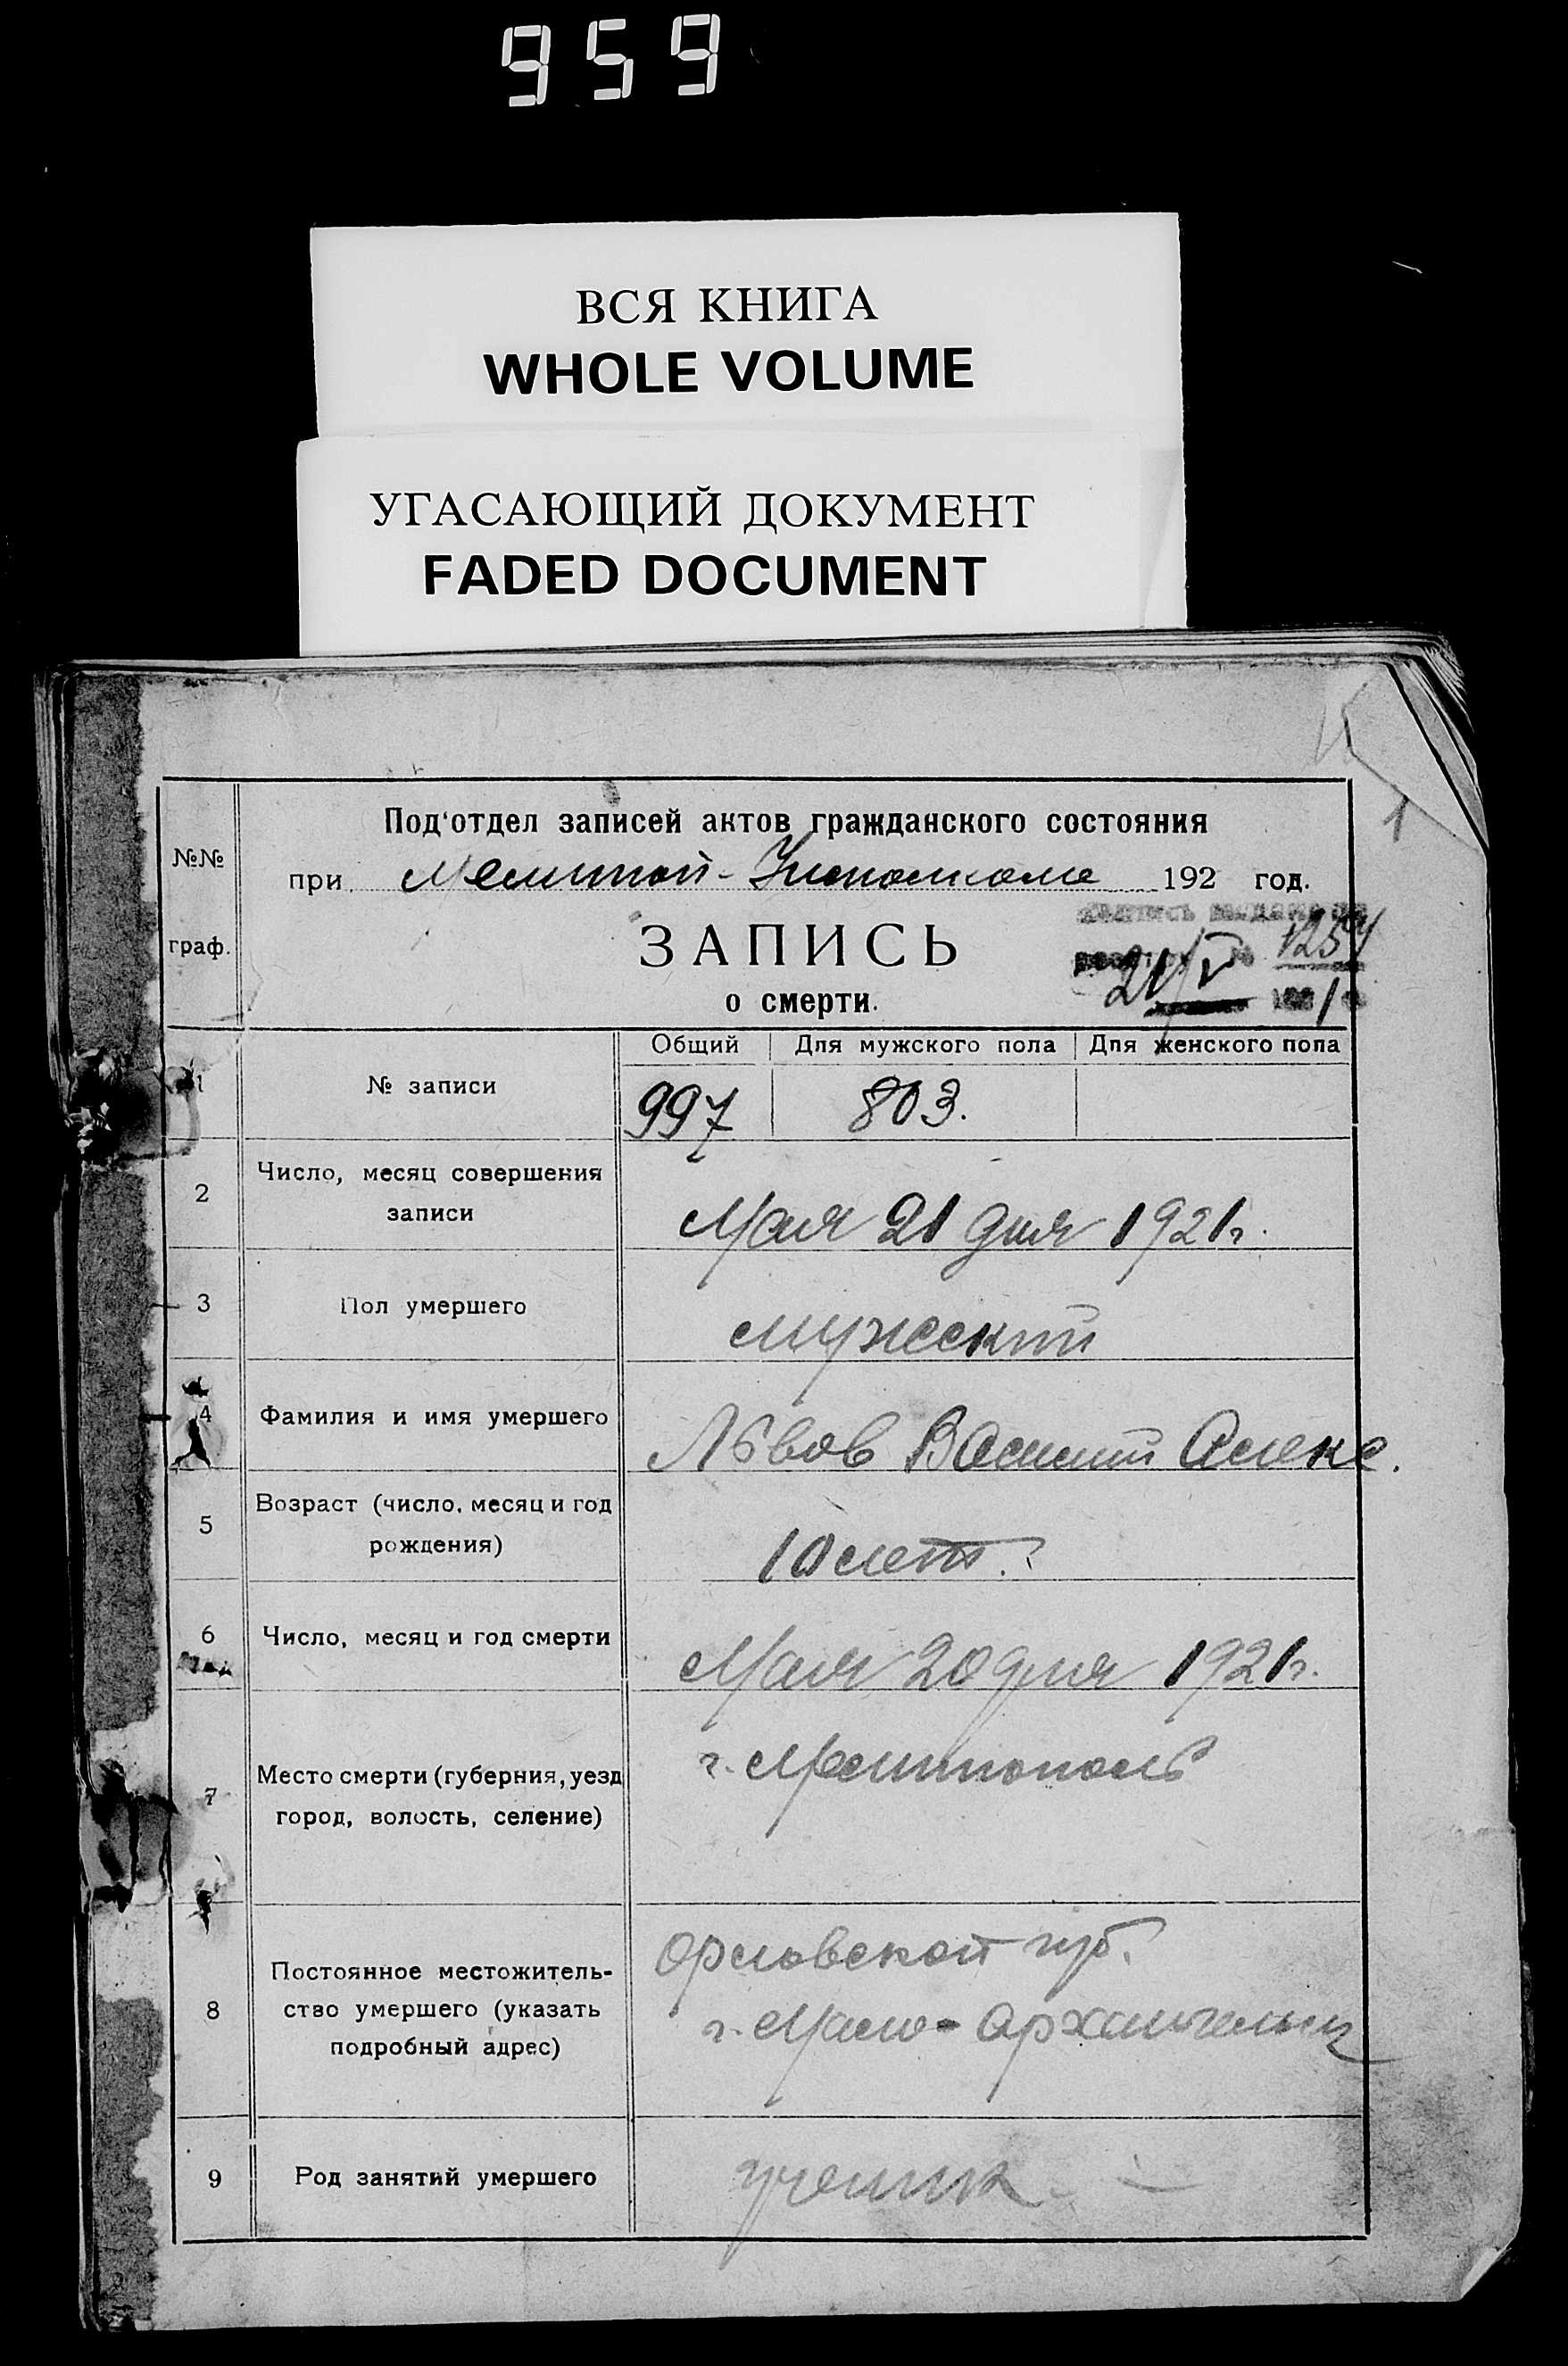 959
ВСЯ КНИГА
WHOLE VOLUME
УГАСАЮЩИЙ ДОКУМЕНТ
FADED DOCUMENT
1
№№
граф.
Под'отдел записей актов гражданского состояния
при Мелитоп-Исполкоме 192 год.
ЗАПИСЬ
о смерти.
1254
21/V
1
Общий Для мужского пола Для женского пола
1 № записи 997 803.
2 Число, месяц совершения
записи
Мая 21 дня 1921г.
3 Пол умершего мужеский
4 Фамилия и имя умершего Львов Василий Алекс.
5 Возраст (число, месяц и год
рождения)
10 лет.
6 Число, месяц и год смерти Мая 20 дня 1921г.
7 Место смерти (губерния, уезд
город, волость, селение)
г. Мелитополь
8 Постоянное местожитель-
ство умершего (указать
подробный адрес)
Орловской губ.
г. Мало-Архангельск
9 Род занятий умершего ученик